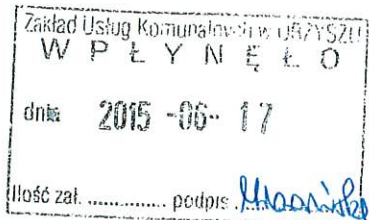 Zakład Usług Komunalnych w ORZYSZU
W P Ł Y N Ę Ł O
dnia 2015 -06- 17
Ilość zał. .............. podpis